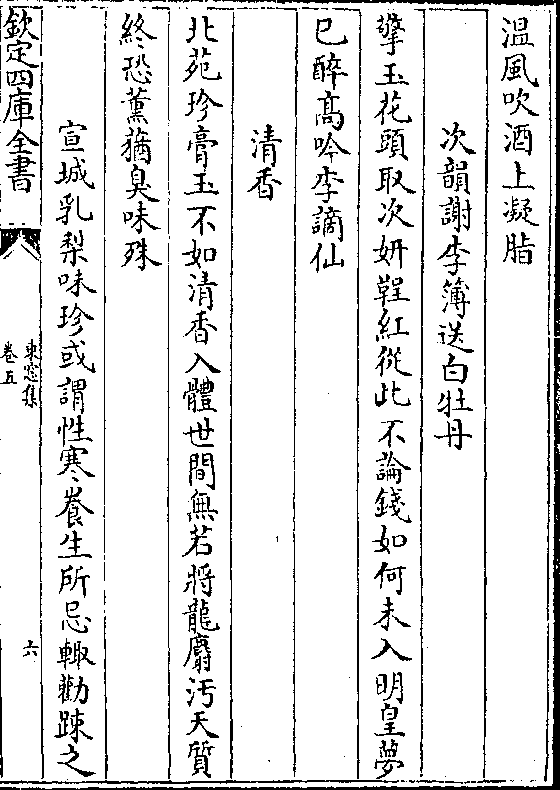 温風吹酒上凝脂
次韻謝李簿送白牡丹
擎玉花頭取次妍鞓紅從此不論錢如何未入明皇夢
已醉髙吟李謫仙
清香
北苑珍膏玉不如清香入體世間無若將龍麝汚天質
終恐薰蕕臭味殊
宣城乳梨味珍或謂性寒養生所忌輙勸踈之
欽定四庫全書
東窓集
卷五
六